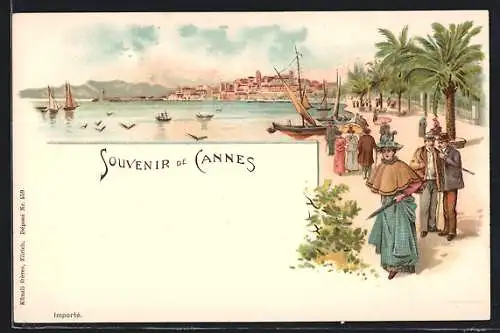 SOUVENIR DE CANNES
Künzli frères, Zürich. Déposé Nr. 559
Importé.